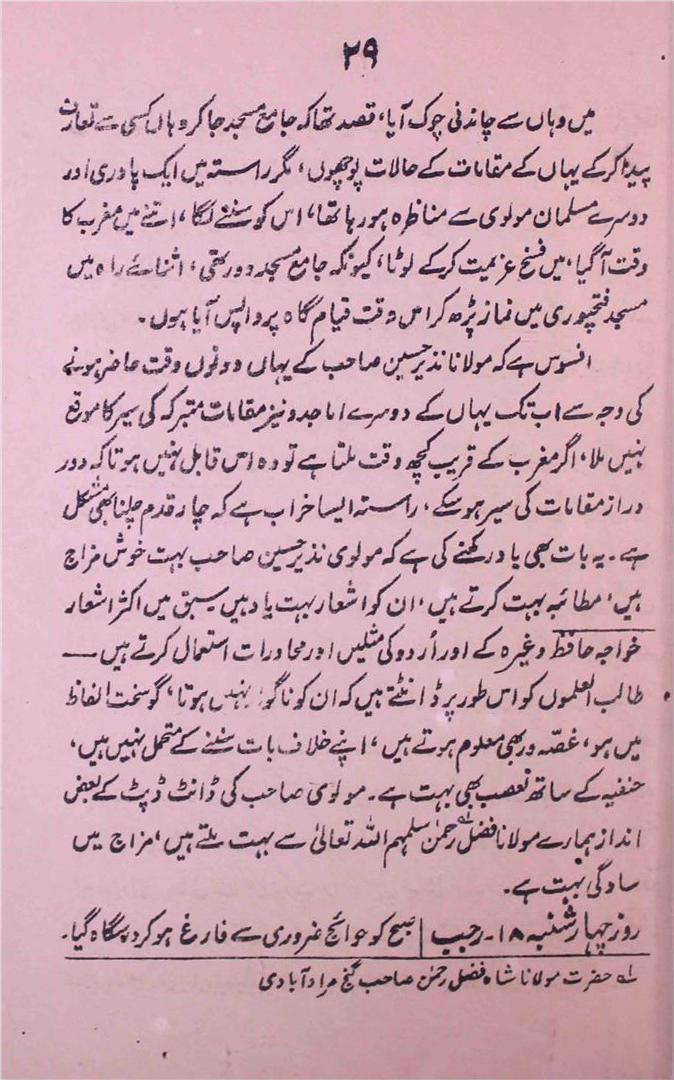 ۲۹
میں وہاں سے چاندنی چوک آیا، قصد تھا کہ جامع مسجد جا کر وہاں کسی سے تعارف
پیدا کر کے یہاں کے مقامات کے حالات پوچھوں، مگر راستہ میں ایک پادری اور
دوسرے مسلمان مولوی سے مناظرہ ہو رہا تھا، اس کو سننے لگا، اتنے میں مغرب کا
وقت آ گیا، میں فسخ عزیمت کر کے لوٹا، کیونکہ جامع مسجد دور تھی، اثنائے راہ میں
مسجد فتحپوری میں نماز پڑھ کر اس وقت قیام گاہ پر واپس آیا ہوں۔
افسوس ہے کہ مولانا نذیر حسین صاحب کے یہاں دونوں وقت حاضر ہونے
کی وجہ سے اب تک یہاں کے دوسرے اماجد و نیز مقامات متبرکہ کی سیر کا موقع
نہیں ملا، اگر مغرب کے قریب کچھ وقت ملتا ہے تو وہ اس قابل نہیں ہوتا کہ دور
دراز مقامات کی سیر ہو سکے، راستہ ایسا خراب ہے کہ چار قدم چلنا بھی مشکل
ہے۔ یہ بات بھی یاد رکھنے کی ہے کہ مولوی نذیر حسین صاحب بہت خوش مزاج
ہیں، مطائبہ بہت کرتے ہیں، ان کو اشعار بہت یاد ہیں سبق میں اکثر اشعار
خواجہ حافظ وغیرہ کے اور اُردو کی مثلیں اور محاورات استعمال کرتے ہیں —
طالب العلموں کو اس طور پر ڈانٹتے ہیں کہ ان کو ناگوار نہیں ہوتا، گو سخت الفاظ
میں ہو، غصّہ ور بھی معلوم ہوتے ہیں، اپنے خلاف بات سننے کے متحمل نہیں ہیں،
حنفیہ کے ساتھ تعصب بھی بہت ہے۔ مولوی صاحب کی ڈانٹ ڈپٹ کے بعض
انداز ہمارے مولانا فضل رحمٰن لہ سلمہم اللہ تعالیٰ سے بہت ملتے ہیں، مزاج میں
سادگی بہت ہے۔
روز چہار شنبہ ۱۸۔ رجب | صبح کو حوائج ضروری سے فارغ ہو کر درسگاہ گیا۔
لہ حضرت مولانا شاہ فضل رحمٰن صاحب گنج مرادآبادی